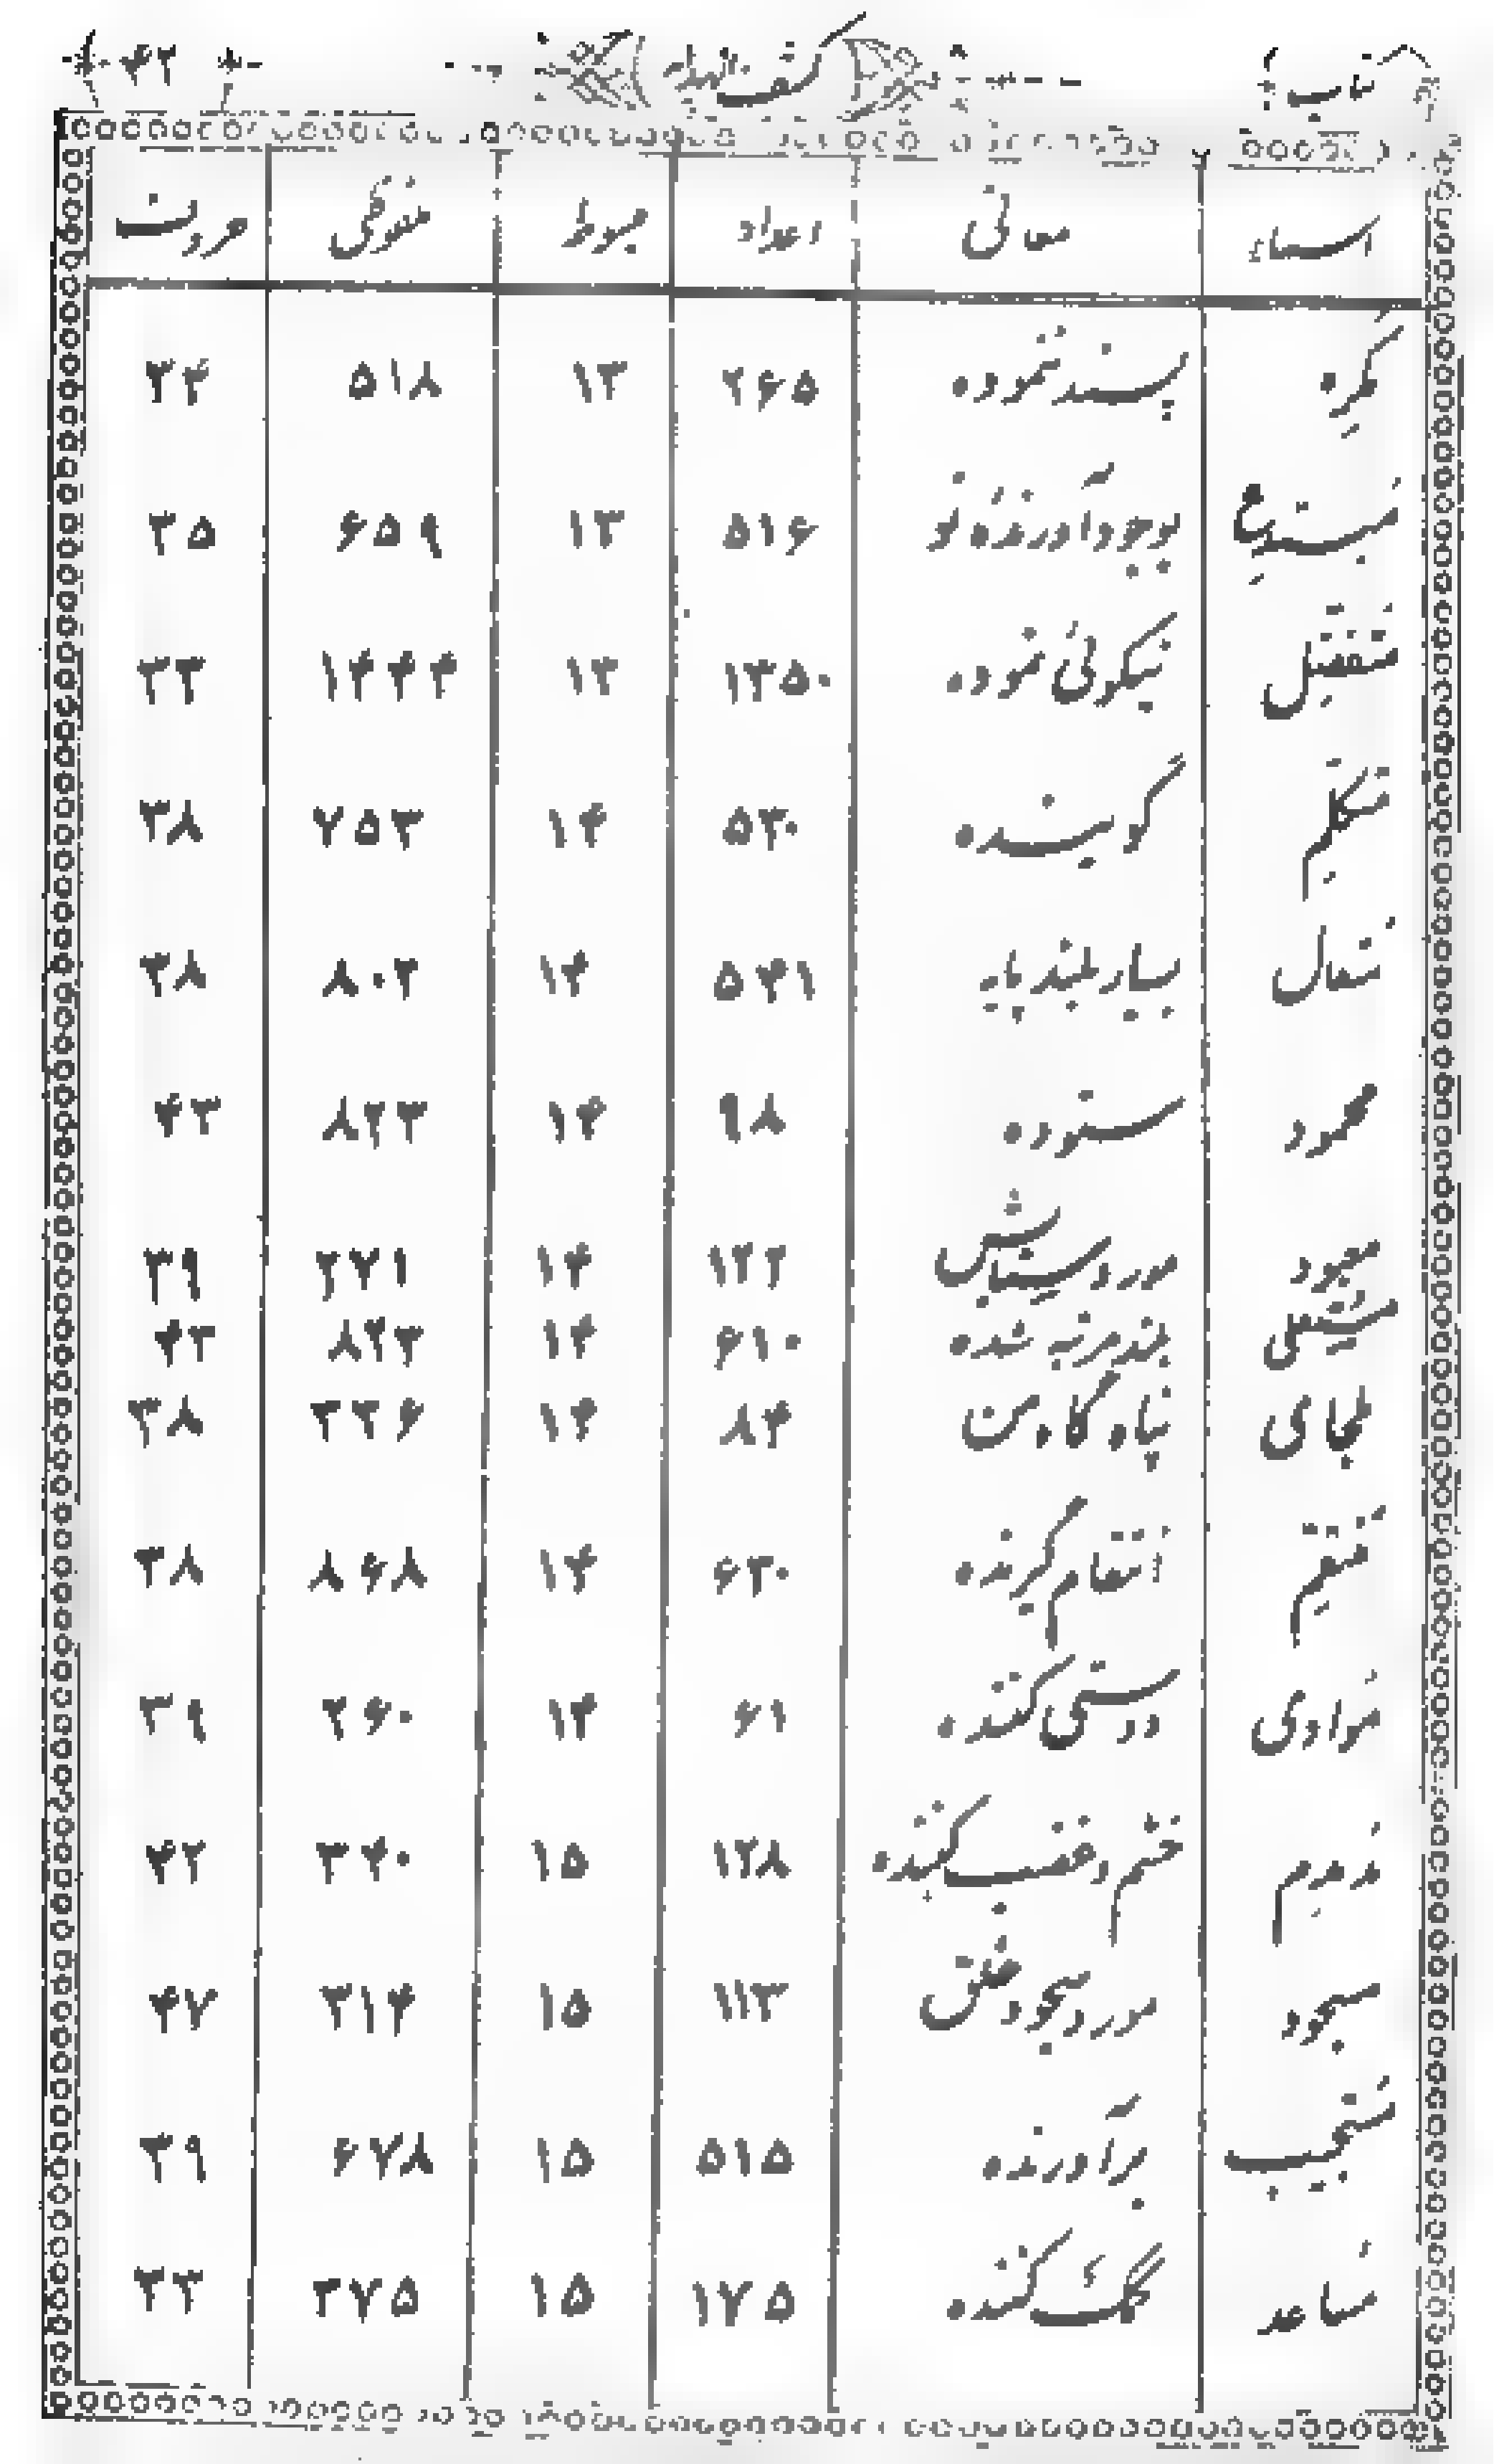 کتاب کشف الهدایه ۴۲
اسماء معانی اعداد مبسوط ملفوظی حروف
مُکرِه پسند ننموده ۲۶۵ ۱۳ ۵۱۸ ۳۴
مُبتدِع بوجود آورندهٔ نو ۵۱۶ ۱۳ ۶۵۹ ۳۵
نیکوئی نموده ۱۳۵۰ ۱۳ ۱۴۴۴ ۳۳
مُتکلِّم گوینده ۵۳۰ ۱۴ ۷۵۳ ۳۸
متعال بسیار بلند پایه ۵۴۱ ۱۴ ۸۰۲ ۳۸
محمود ستوده ۹۸ ۱۴ ۸۲۳ ۴۳
معبود مورد ستایش ۱۲۲ ۱۴ ۲۷۱ ۳۹
بلند مرتبه شده ۶۱۰ ۱۴ ۸۲۳ ۴۳
ملجای پناه گاه من ۸۴ ۱۴ ۳۲۶ ۳۸
مُنتقِم انتقام گیرنده ۶۳۰ ۱۴ ۸۶۸ ۳۸
مُوادی دوستی کننده ۶۱ ۱۴ ۲۶۰ ۳۹
مُدمدِم خشم و غضب کننده ۱۲۸ ۱۵ ۳۴۰ ۴۲
مسجود مورد سجود خلق ۱۱۳ ۱۵ ۳۱۴ ۴۷
مُستجیب برآورنده ۵۱۵ ۱۵ ۶۷۸ ۳۹
مُساعد کمک کننده ۱۷۵ ۱۵ ۳۷۵ ۳۳